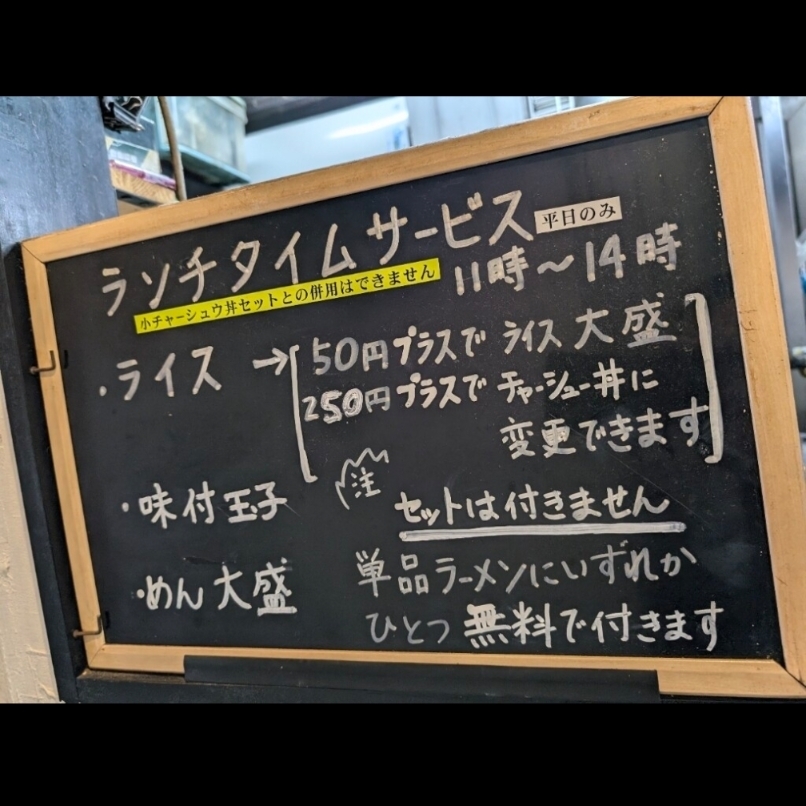 ランチタイムサービス 平日のみ
小チャーシュウ丼セットとの併用はできません 11時〜14時
・ライス → 50円プラスで ライス大盛
250円プラスで チャーシュー丼に
変更できます
・味付玉子 注 セットは付きません
・めん大盛 単品ラーメンにいずれか
ひとつ 無料で付きます